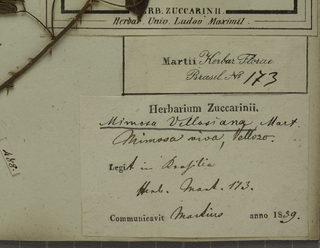 HERB. ZUCCARINII.
Herbar. Univ. Ludov. Maximil.
Martii Herbar. Florae
Brasil. No 173
Herbarium Zuccarinii.
Mimosa Vellosiana Mart.
Mimosa viva, Velloz.
Legit in Brasilia
Herb. Mart. 173.
Communicavit Martius anno 1839.